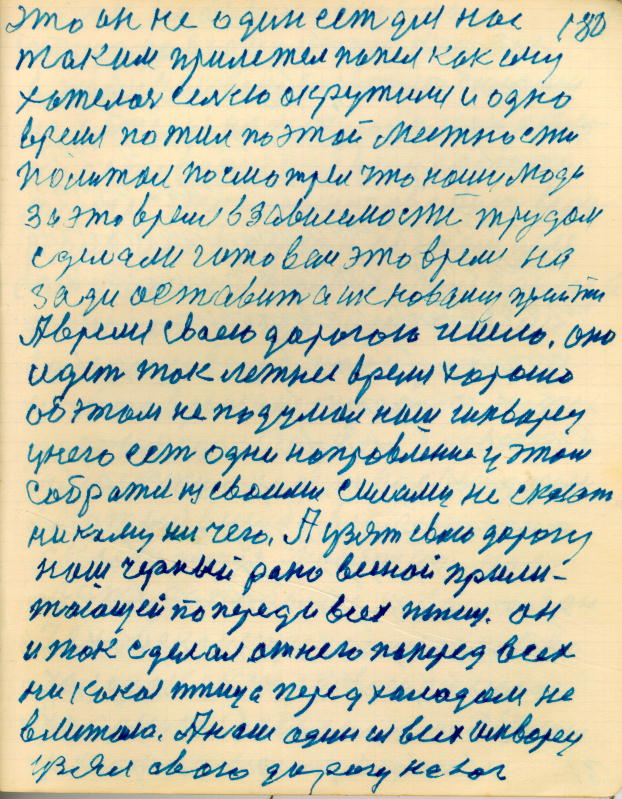 это он не один ест для нас 180
таким прилетел попел как ему
хателоя семю окружили и одно
время пожил по этой местности
политал посмотрел что наши люди
за это время в зависемости трудом
сделали готовои это время на
зади оставит а ик новаму прийти
А время своею дорогою ишло. оно
идет так летнее время харошо
об этом не подумал наш скворец
у него ест одни направление у этом
собрати из своими силами не сказат
никаму ни чего. А узят свою дорогу
наш черный рано весной прили-
тающей попереди всех птиц. он
и так сделал от него поперед всех
ни какая птица перед халодом не
влитала. А наш один из всех скворец
узял свою дорогу не